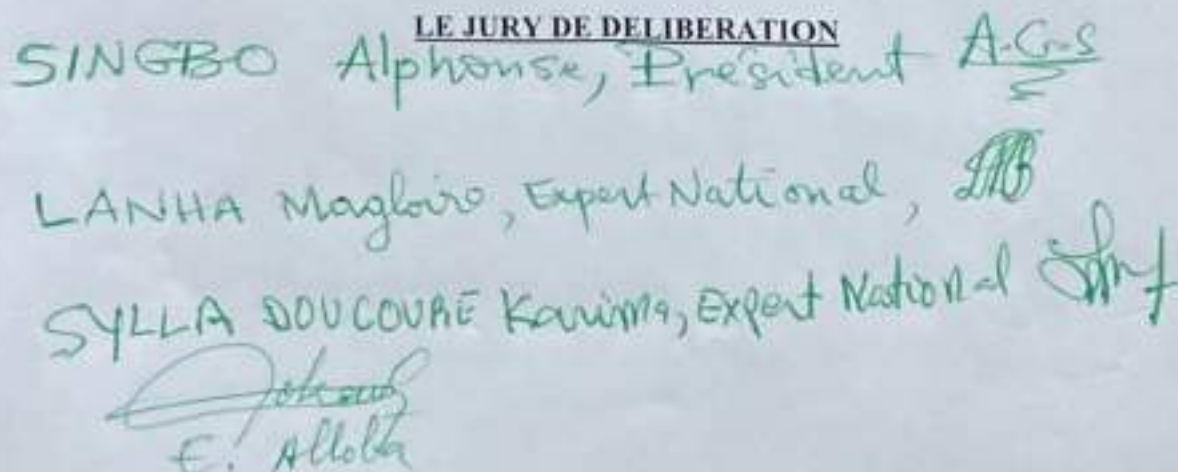 LE JURY DE DELIBERATION
SINGBO Alphonse, Président A.G.S
LANHA Magloire, Expert National,
SYLLA DOUCOURE Karima, Expert National
E.